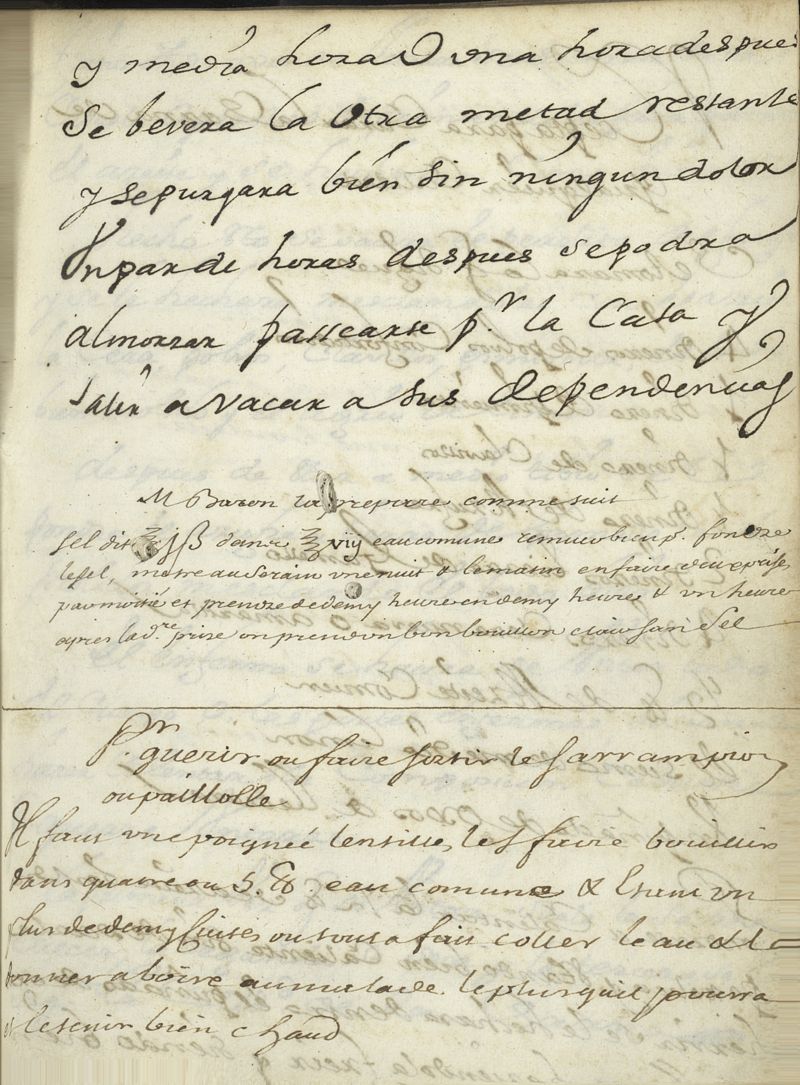 y media hora O una hora despues
Se bevera la Otra metad restante
y sepurgara bien sin ningun dolor
Un par de horas despues sepodra
almorzar passearse p.r la Casa y
Salir a vacar a sus dependencias
M Baron la prepare comme suit
sel dis dans ℥ viij eau comune remuer bien p.r fondre
le sel, metre au serain une nuit & le matin en faire deux prises
par moitié et prendre de demy heure en demy heure & un heure
apres la d.re prise on prend un bon bouillon clair sans sel
P.r guerir ou faire sortir le sarrampion
ou paillolle
Il faut une poignée lentilles, les faire bouillir
dans quatre ou 5. ℔. eau comune & Etant un
plus de demy cuites ou tout a fait coller leau & la
donner a boire au malade le plus quil pourra
et le tenir bien chaud